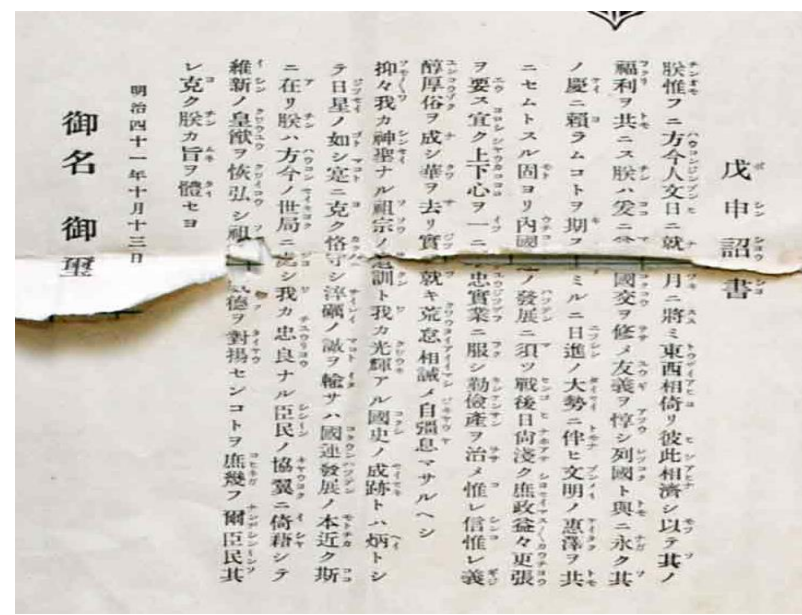 戊申詔書
朕惟フニ方今人文日ニ就月ニ將ミ東西相倚リ彼此相濟シ以テ其ノ
福利ヲ共ニス朕ハ爰ニ國交ヲ修メ友義ヲ惇シ列國ト與ニ永ク其
ノ慶ニ賴ラムコトヲ期ミルニ日進ノ大勢ニ伴ヒ文明ノ惠澤ヲ共
ニセムトスル固ヨリ內國ノ發展ニ須ツ戰後日尙淺ク庶政益々更張
ヲ要ス宜ク上下心ヲ一ニ忠實業ニ服シ勤儉產ヲ治メ惟レ信惟レ義
醇厚俗ヲ成シ華ヲ去リ實就キ荒怠相誡メ自彊息マサルヘシ
抑々我カ神聖ナル祖宗ノ訓ト我カ光輝アル國史ノ成跡トハ炳トシ
テ日星ノ如シ寔ニ克ク恪守シ淬礪ノ誠ヲ輸サハ國運發展ノ本近ク斯
ニ在リ朕ハ方今ノ世局ニ處シ我カ忠良ナル臣民ノ協翼ニ倚藉シテ
維新ノ皇猷ヲ恢弘シ祖威德ヲ對揚センコトヲ庶幾フ爾臣民其
レ克ク朕カ旨ヲ體セヨ
明治四十一年十月十三日
御名御璽